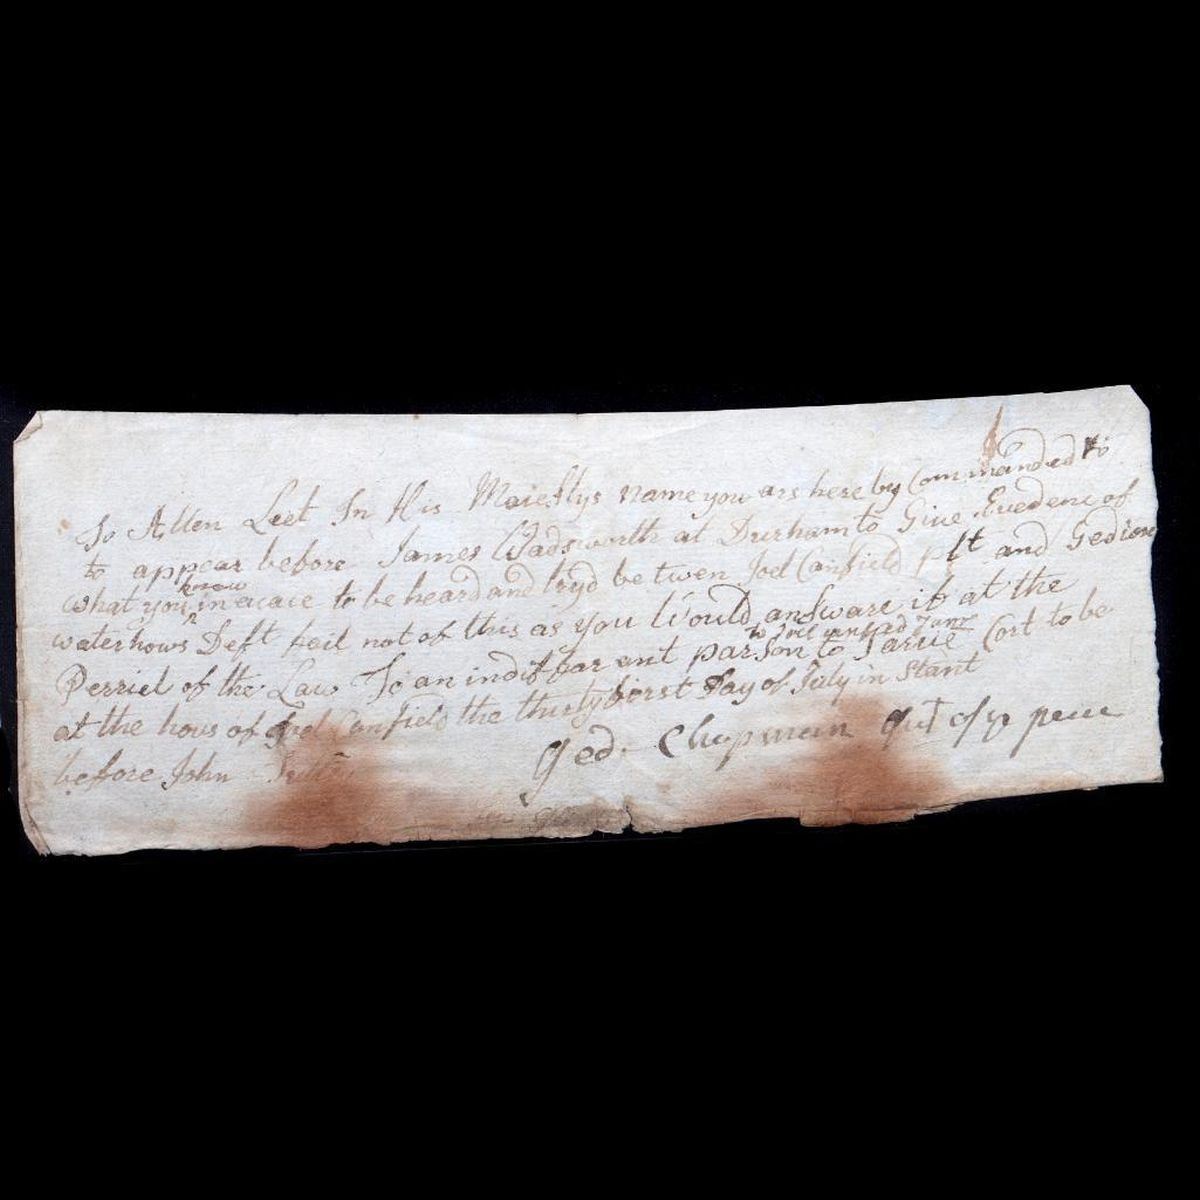 To Allen Leet In His Maiestys name you ars here by Commanded to
to appear before James Wadsworth at Durham to Give Evedenc of
what you know in a cace to be heard and tryd be twen Joel Canfield plt and Gedion
waterhows Deft fail not of this as you Would answare it at the
Perriel of the Law To an indif far ant parson to Sarve
to Joel canfied
Cort to be
at the hous of Joel Canfield the thirty first Day of July in Stant
before John
Ged. Chapman Just of ye peace